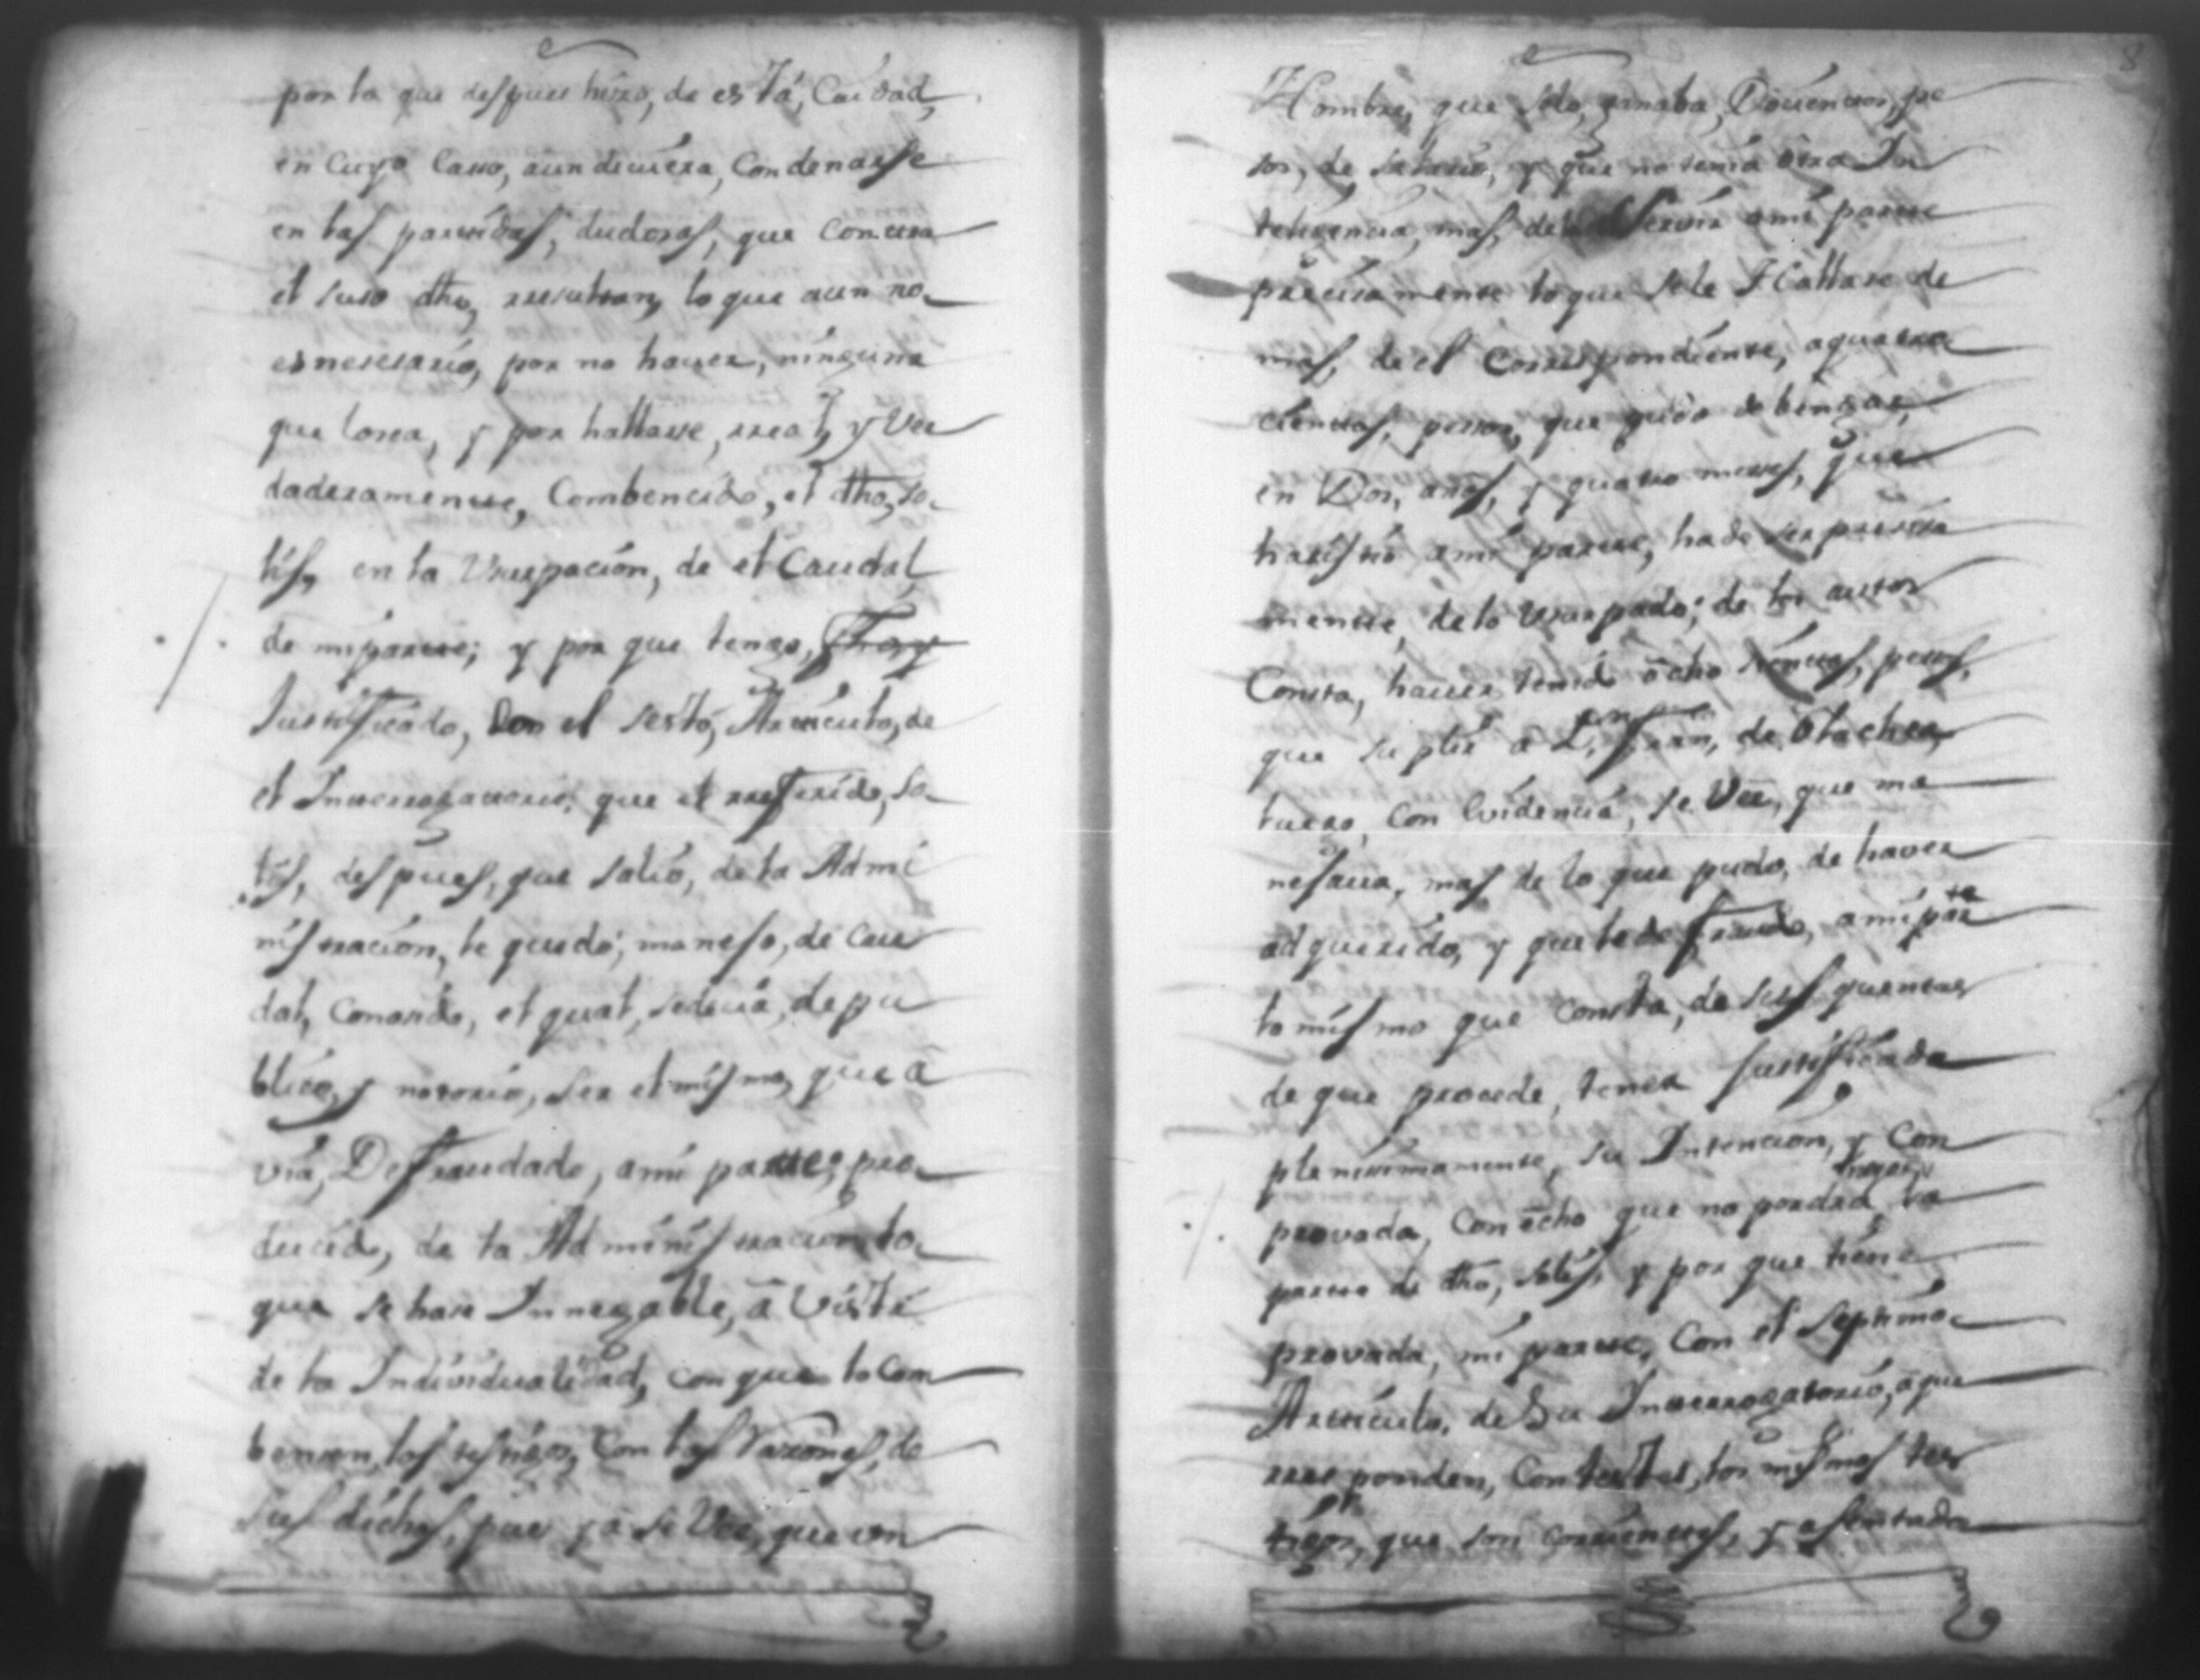 por la que despues hizo, de està, Cuidad,
en Cuyo Casso, aun deviera, Condenarse
en las partidas, dudosas, que Contra
el suso dho, resultan, lo que aun no
es nesesario, por no haver, ninguna
que lo sea, y por hallarse, rreal, y Ver
daderamente, Combencido, el dho, so
lis, en la Vsurpacion, de el Caudal,
de mi parte; y por que tengo,
Justificado, Con el sesto, Articulo, de
el Interrogatorio, que el rreferido, So
lis, despues, que salio, de la Admi
nistracion, le quedo, manejo, de Cau
dal, Conosido, el qual, sedecia, de pu
blico, y notorio, ser el mismo, que a
via, Defraudado, a mi parte, pro
ducido, de la Administracion, lo
que se hase Innegable, a Vista
de la Individualidad, con que lo Com
bensen, los testigos, Con las Razones, de
sus dichos, pues ya se Vee, que un
8
Hombre, que solo, ganaba, Docientos, pe
sos, de salario, y que no tenia otra In
teligencia, mas, de Servir a mi parte
precisamente lo que se le Hallase de
mas, de el Correspondiente, a quatro
cientos, pessos, que pudo debengar,
en Dos, años, y quatro meses, que
havistio a mi parte, ha de ser presisa
mente, de lo Vsurpado; de los autos
Consta, haver tenido ocho sientos, pesos,
que suplir a Dn. Fran, de Olachea,
luego, Con Evidencia, se Vee, que ma
nejava, mas de lo que pudo, de haver
adquirido, y que lo de fraudo, a mi parte
lo mismo que Consta, de sus quentas
de que procede, tener Justificada
plenissimamente, su Intencion, y Con
provada, Con echo que no podra negar la
parte de dho, solis, y por que tiene
provada, mi parte, Con el septimo
Articulo, de Su Interrogatorio, a que
rresponden, Contestes, los mismos tes
tigos, que son corrientes, y asentada